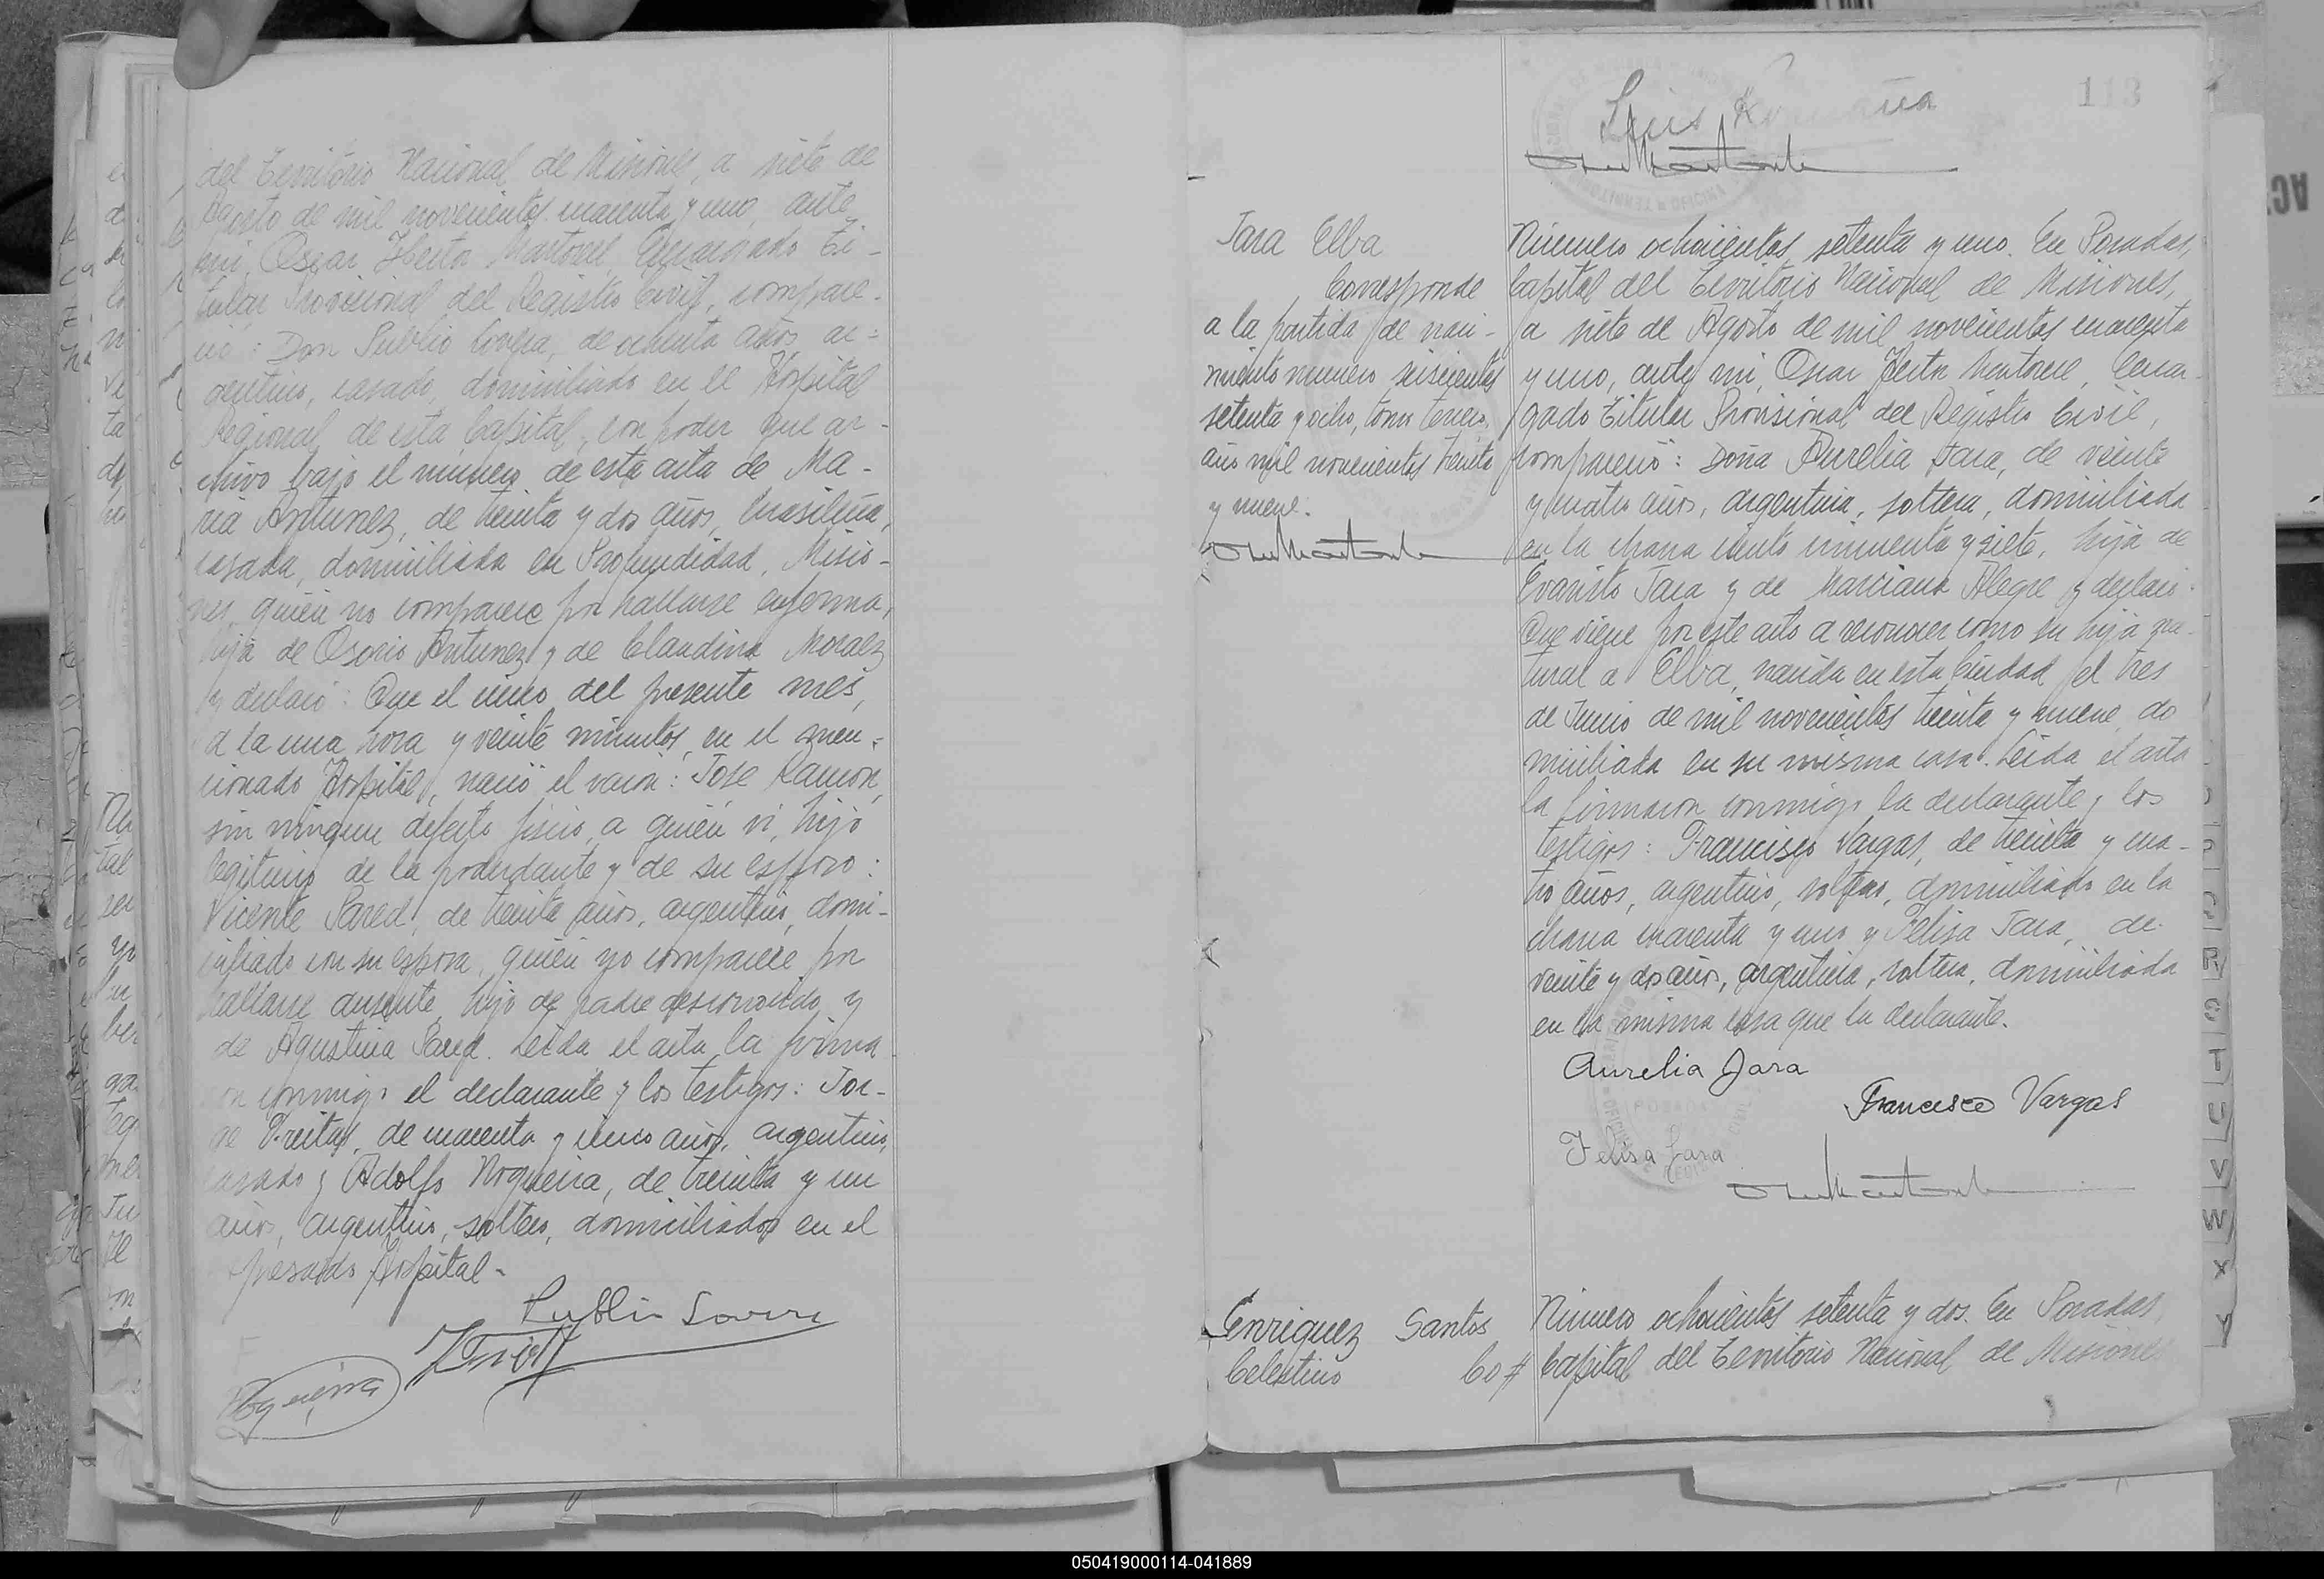 del Territorio Nacional de Misiones, a siete de
Agosto de mil novecientos cuarenta y uno, ante
mi, Oscar Hector Martorell, Encargado Ti-
tular Provisional del Registro Civil, compare-
ció: Don Publio Lovera, de ochenta años, ar-
gentino, casado, domiciliado en el Hospital
Regional de esta Capital, con poder que ar-
chivo bajo el número de esta acta de Ma-
ria Antunez, de treinta y dos años, brasileña,
casada, domiciliada en Profundidad, Misio-
nes, quién no comparece por hallarse enferma,
hija de Osorio Antunez y de Claudina Moraez
y declaró: Que el cinco del presente mes,
a la una hora y veinte minutos, en el men-
cionado Hospital, nació el varón: Jose Ramon,
sin ningun defecto fisico, a quién vi, hijo
legitimo de la poderdante y de su esposo:
Vicente Pared, de treinta años, argentino, domi-
ciliado con su esposa, quién no comparece por
hallarse ausente, hijo de padre desconocido y
de Agustina Pared. Leida el acta, la firma-
ron conmigo el declarante y los testigos: Jor-
ge Freitas, de cuarenta y cinco años, argentino,
casado y Adolfo Nogueira, de treinta y un
años, argentino, soltero, domiciliados en el
expresado Hospital-
Publio Lovera
Nogueira
113
Luis
Jara Elba
Corresponde
a la partida de naci-
miento numero seiscientos
setenta y ocho, tomo tercero,
año mil novecientos treinta
y nueve.
Número ochocientos setenta y uno. En Posadas,
Capital del Territorio Nacional de Misiones,
a siete de Agosto de mil novecientos cuarenta
y uno, ante mi, Oscar Hector Martorell, Encar-
gado Titular Provisional del Registro Civil,
compareció: Doña Aurelia Jara, de veinte
y cuatro años, argentina, soltera, domiciliada
en la chacra ciento cincuenta y siete, hija de
Evaristo Jara y de Marciana Alegre y declaró:
Que viene por este acto a reconocer como su hija na-
tural a Elba, nacida en esta Ciudad el tres
de Junio de mil novecientos treinta y nueve, do
miciliada en su misma casa. Leida el acta
la firmaron conmigo la declarante y los
testigos: Francisco Vargas, de treinta y cua-
tro años, argentino, soltero, domiciliado en la
chacra cuarenta y uno y Felisa Jara, de
veinte y dos años, argentina, soltera, domiciliada
en la misma casa que la declarante.
Aurelia Jara
Francisco Vargas
Felisa Jara
Enriquez Santos
Celestino Co#
Número ochocientos setenta y dos. En Posadas,
Capital del Territorio Nacional de Misiones
R
S
T
U
V
W
X
Y
050419000114-041889